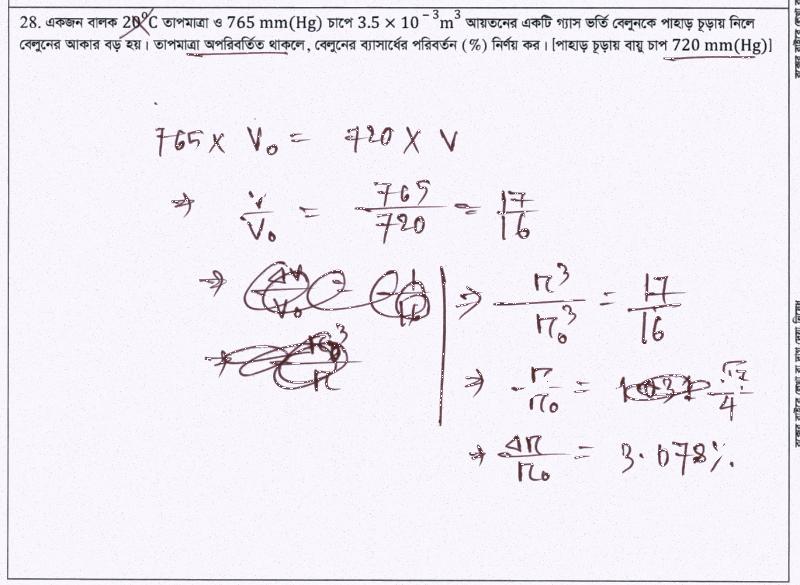 28. একজন বালক 20°C তাপমাত্রা ও 765 mm(Hg) চাপে 3.5 × 10⁻³m³ আয়তনের একটি গ্যাস ভর্তি বেলুনকে পাহাড় চূড়ায় নিলে
বেলুনের আকার বড় হয়। তাপমাত্রা অপরিবর্তিত থাকলে, বেলুনের ব্যাসার্ধের পরিবর্তন (%) নির্ণয় কর। [পাহাড় চূড়ায় বায়ু চাপ 720 mm(Hg)]
765 × V₀ = 720 × V
⇒ V/V₀ = 765/720 = 17/16
⇒ r³/r₀³ = 17/16
⇒ r/r₀ =
⇒ Δr/r₀ = 3.078%.